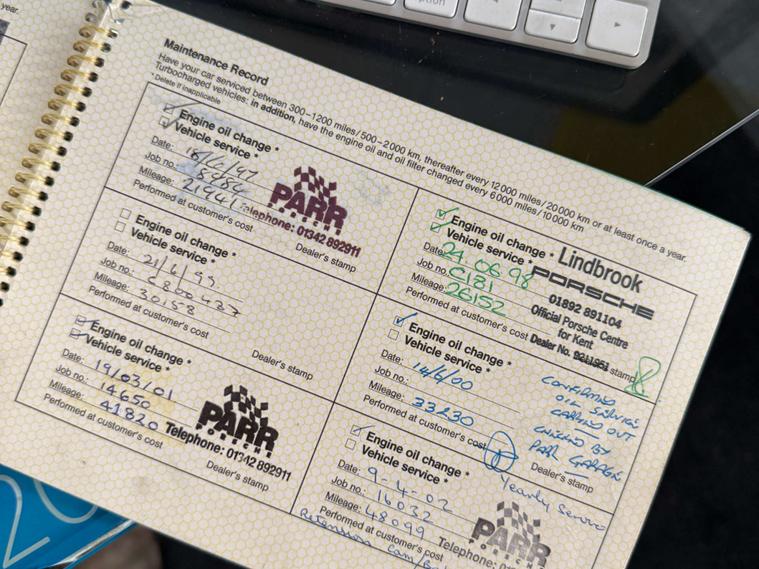 year.
option
Maintenance Record
Have your car serviced between 300–1200 miles/500–2000 km, thereafter every 12000 miles/20000 km or at least once a year.
Turbocharged vehicles: in addition, have the engine oil and oil filter changed every 6000 miles/10000 km
* Delete if inapplicable
Engine oil change *
Vehicle service *
Date:
Job no.:
Mileage: 21941
Performed at customer's cost
PARR
PORSCHE
Telephone: 01342 892911
Dealer's stamp
Engine oil change *
Vehicle service *
Date: 24.06.98
Job no. C181
Mileage: 26152
Performed at customer's cost
Lindbrook
PORSCHE
01892 891104
Official Porsche Centre
for Kent
Dealer No.
stamp
Engine oil change *
Vehicle service *
Date: 21/6/99
Job no:
Mileage: 30158
Performed at customer's cost
Dealer's stamp
Engine oil change *
Vehicle service *
Date: 14/6/00
Job no:
Mileage: 33230
Performed at customer's cost
CONFIRMED
OIL SERVICE
CARRIED OUT
BY
PAR GARAGE
Dealer's stamp
Engine oil change *
Vehicle service *
Date: 19/03/01
Job no.: 14650
Mileage: 41820
Performed at customer's cost
PARR
PORSCHE
Telephone: 01342 892911
Dealer's stamp
Engine oil change *
Vehicle service *
Date: 9-4-02
Job no.: 16032
Mileage: 48099
Performed at customer's cost
Yearly Service
PARR
PORSCHE
Telephone: 01342
Retension Cam/
20